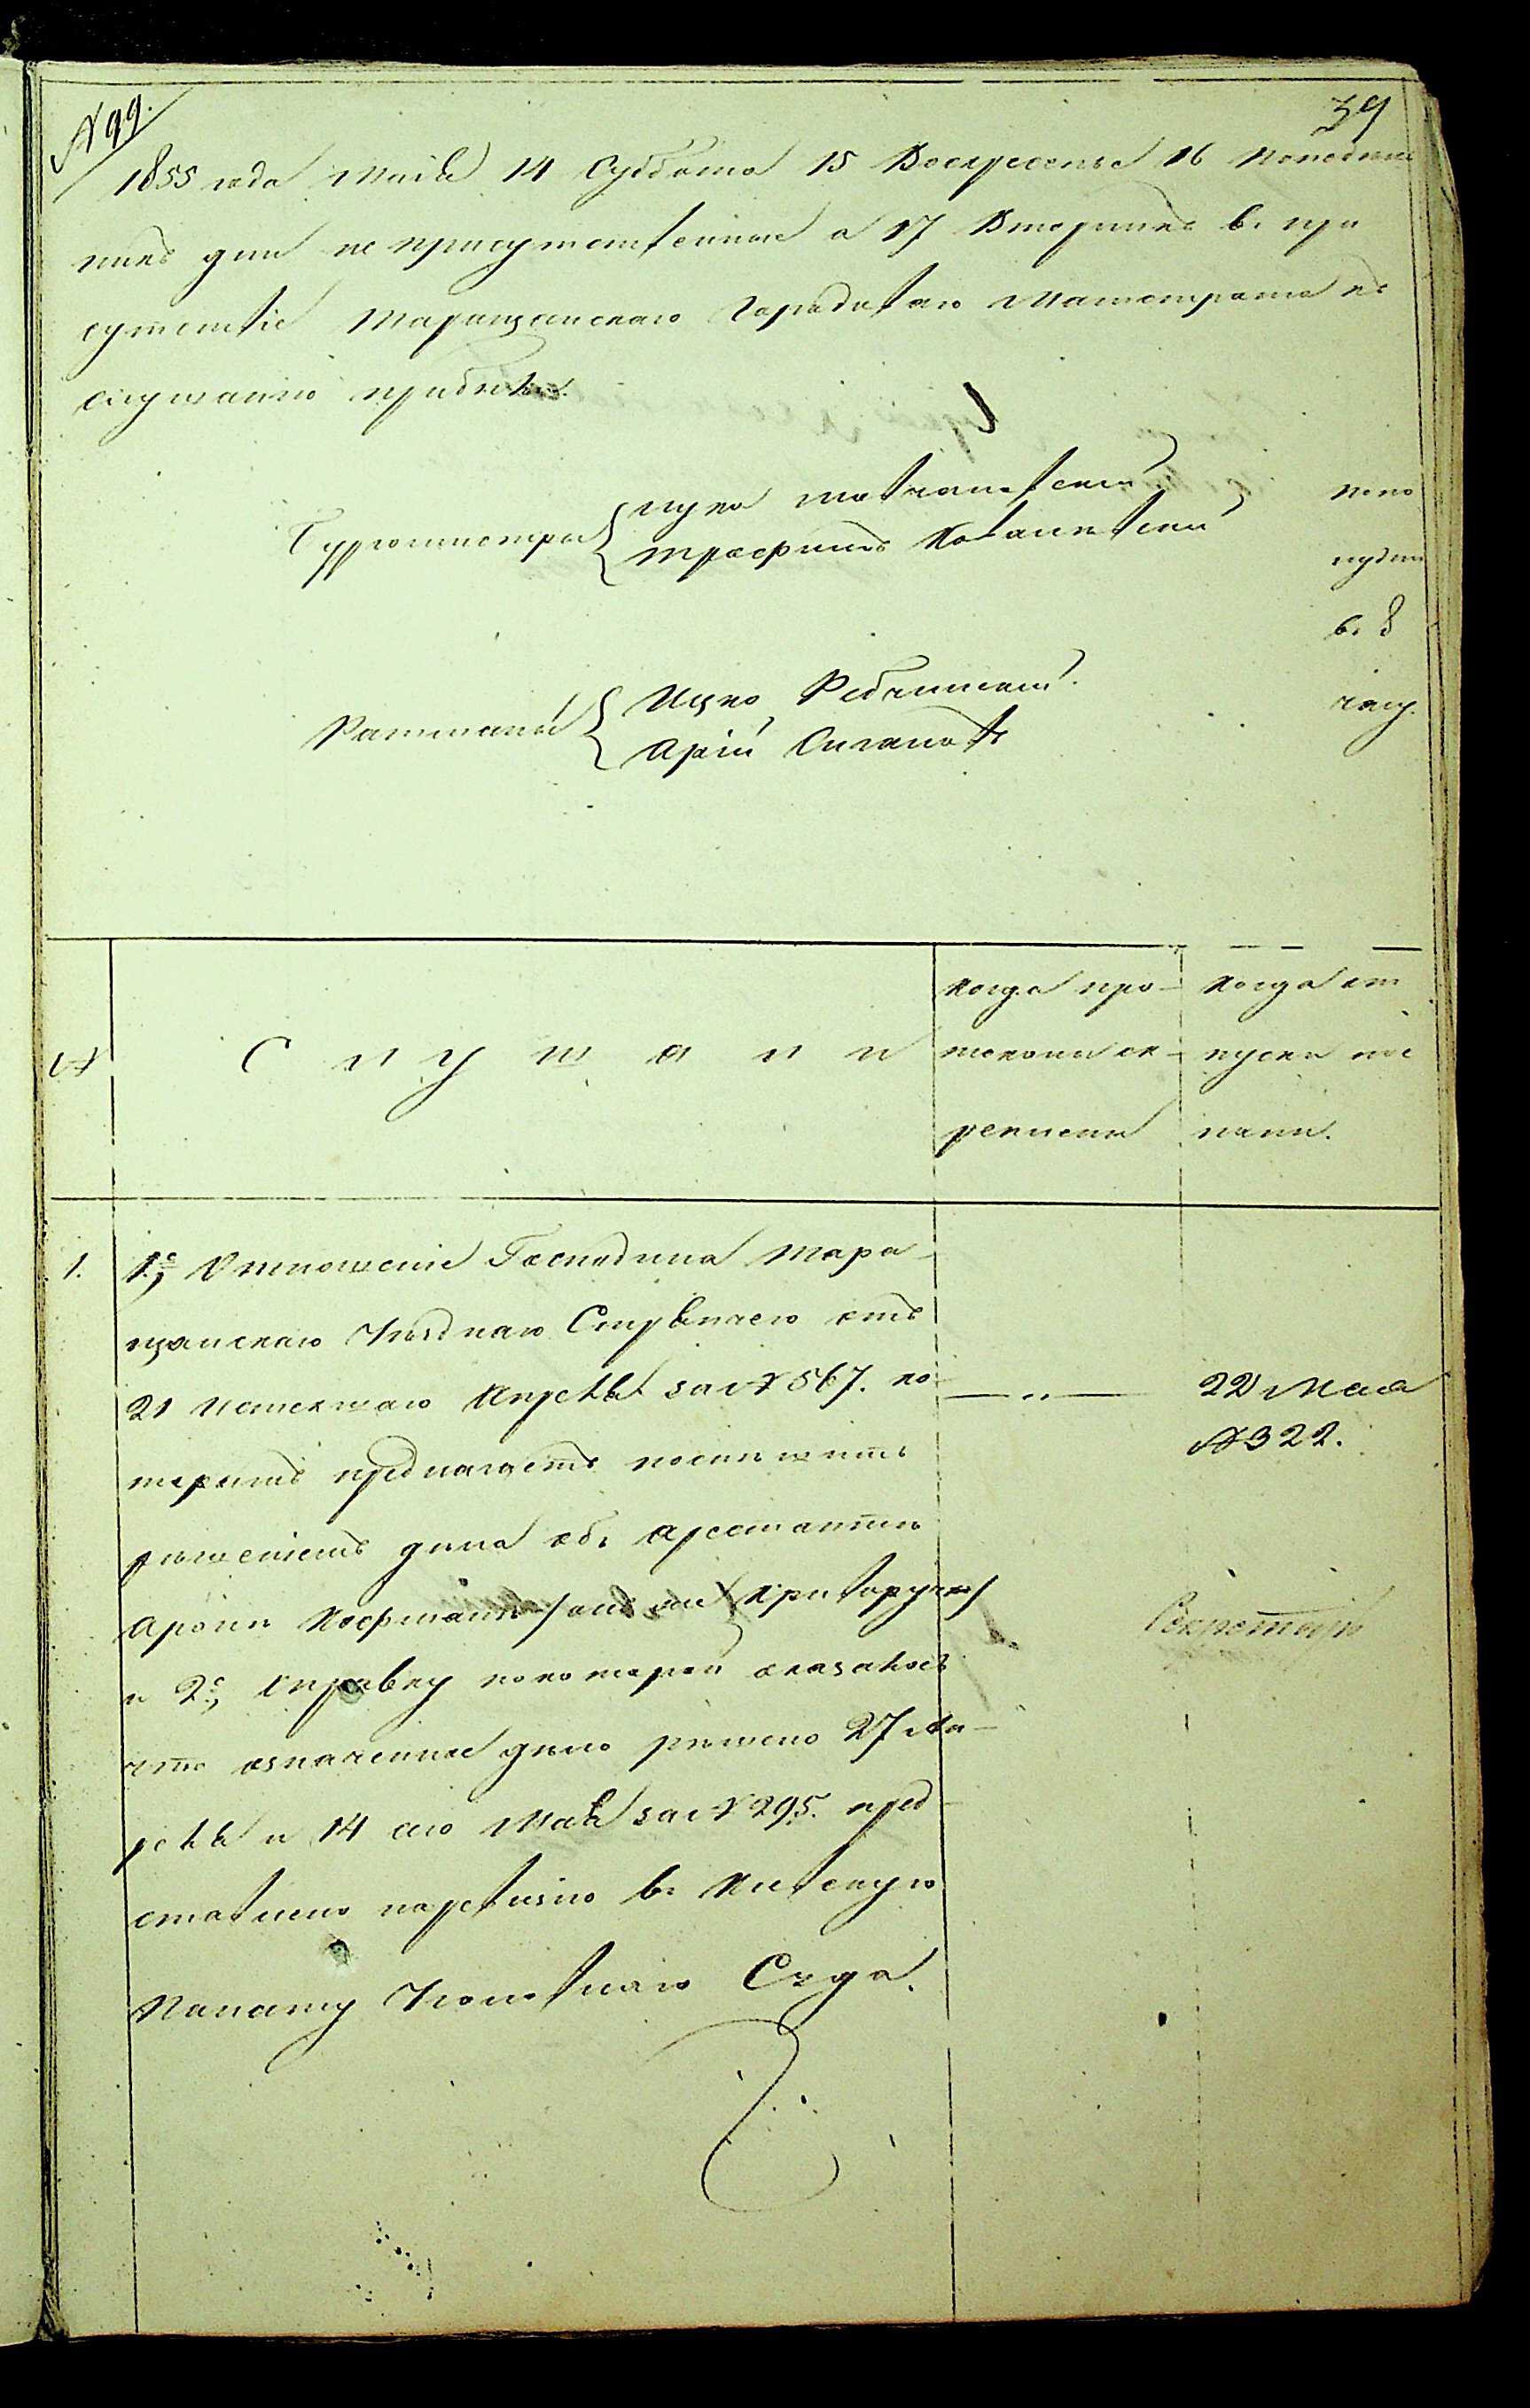 № 99.
39
1855 года Мая 14 Суббота 15 Воскресенье 16 Понедель
никъ дни не присутственные а 17 Вторникъ въ при
сутствіе Таращанскаго Городоваго Магистрата къ
слушанію прибыли.
Бургомистры
Трофимъ
попо
лудни
въ 8
часу.
Ратманы
Ицко
Арій
№
Слушали
Когда про-
токолы ск-
репленъ
Когда от
пуски пос
ланы.
1.
1е, Отношеніе Господина Тара-
щанскаго Уѣзднаго Стряпчаго отъ
21 истекшаго Апрѣля за № 567. ко-
торымъ предлагаетъ поспѣшить
рѣшеніемъ дѣла объ арестантѣ
Аронѣ Кофманѣ
и 2е, Справку по которой оказалось
что означенное дѣло рѣшено 27 Ап-
рѣля и 14 сего Мая за № 295. пред-
ставлено на ревизію въ Кіевскую
Палату Уголовнаго Суда.
— " —
22 Мая
№ 322.
Секретарь